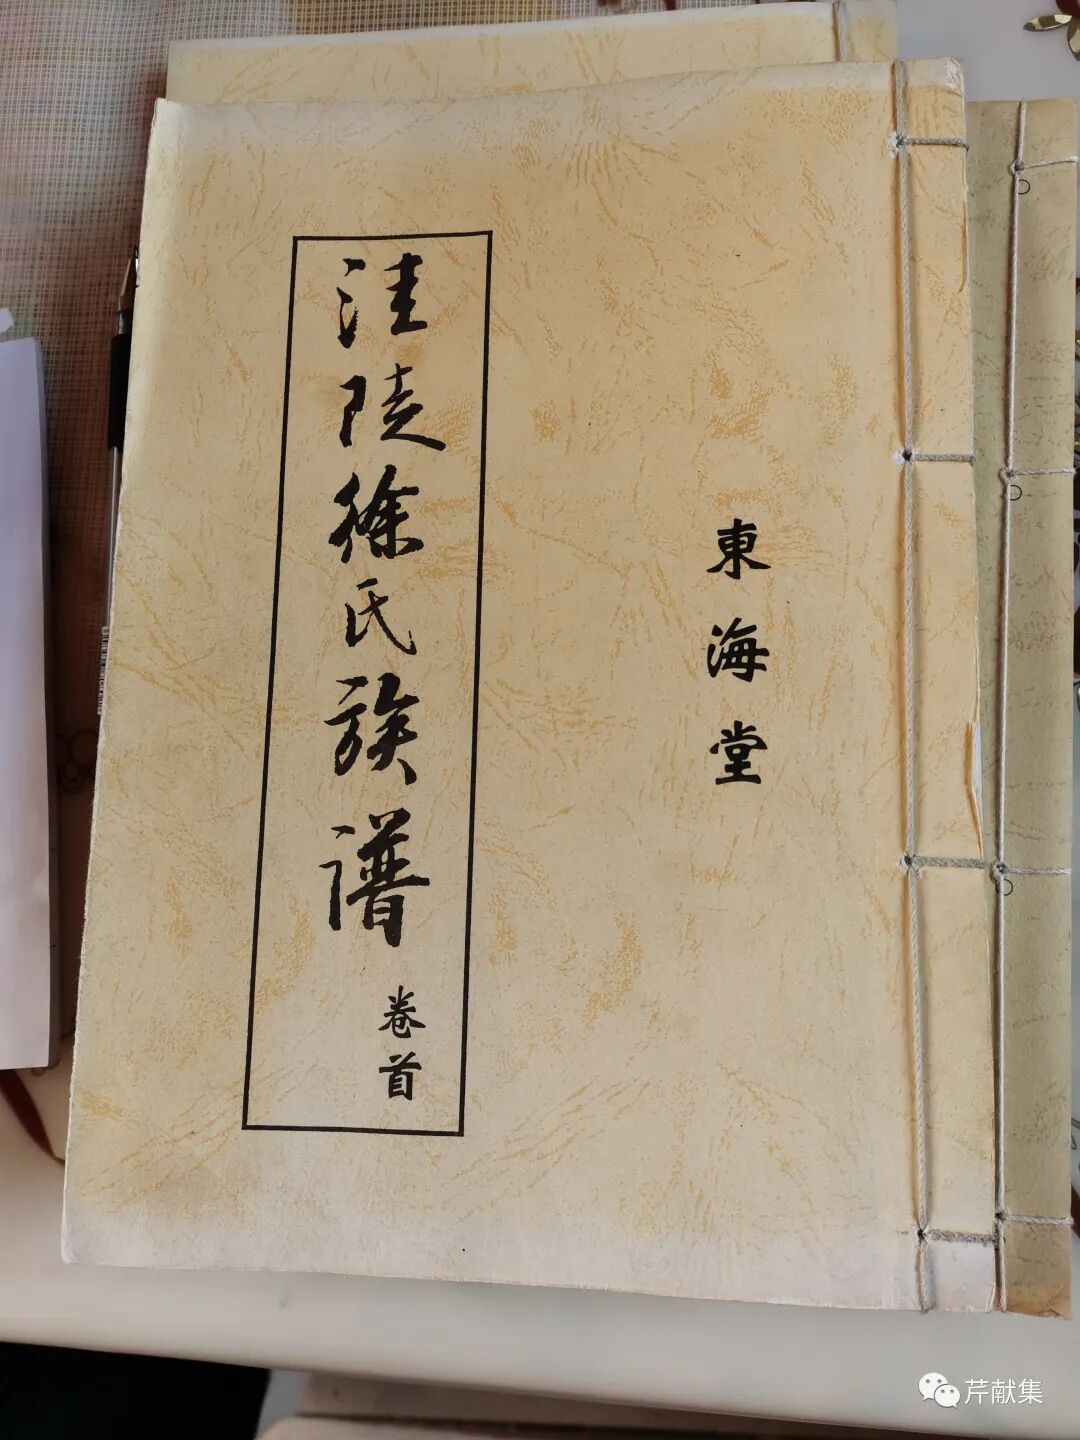 東海堂
洼陡徐氏族谱
卷首
芹献集